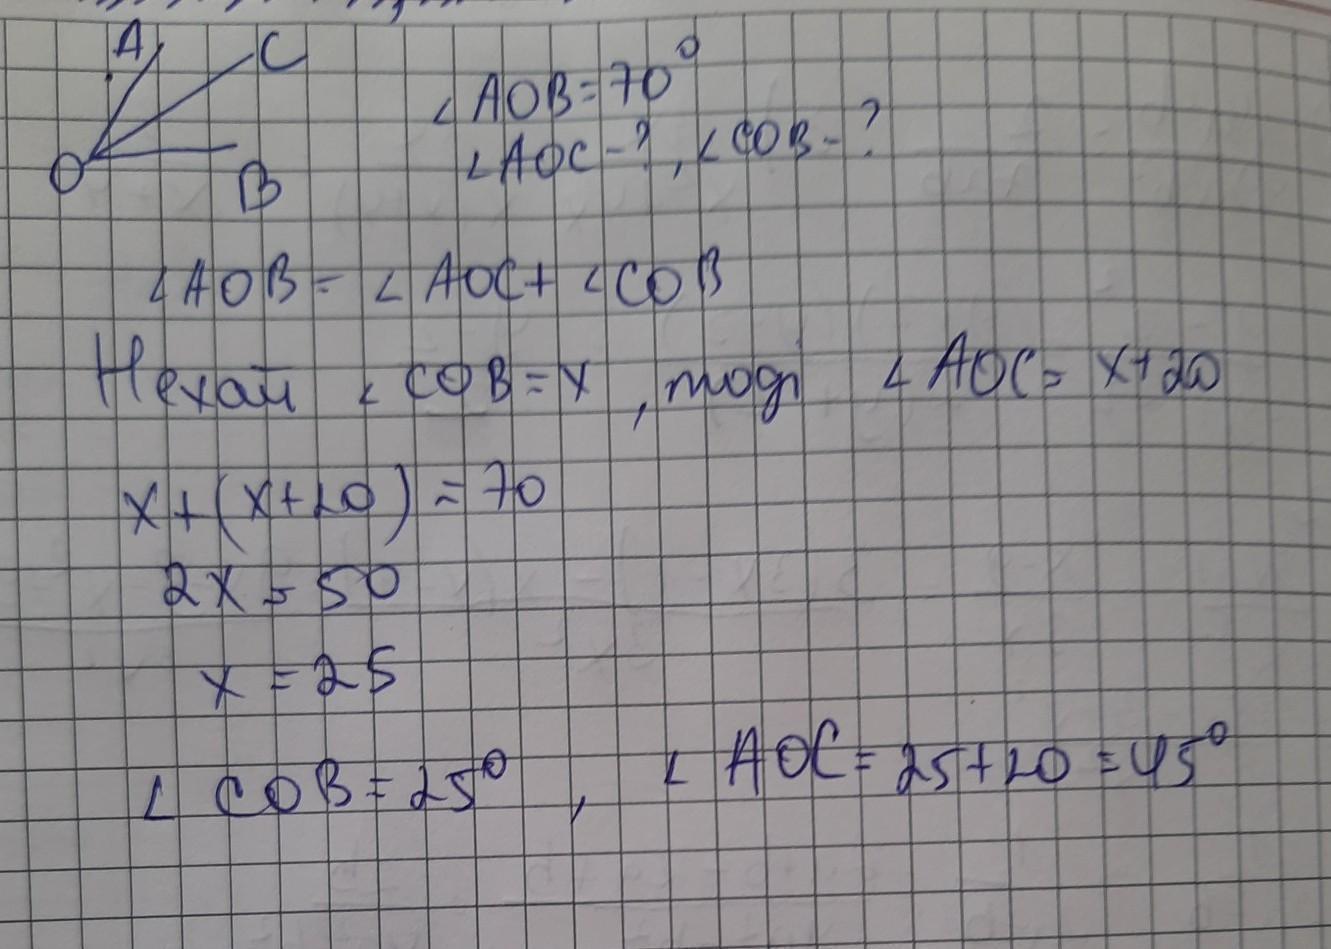 A C
O B
∠AOB=70°
∠AOC-?, ∠COB-?
∠AOB=∠AOC+∠COB
Нехай ∠COB=x, тоді ∠AOC=x+20
x+(x+20)=70
2x=50
x=25
∠COB=25°, ∠AOC=25+20=45°